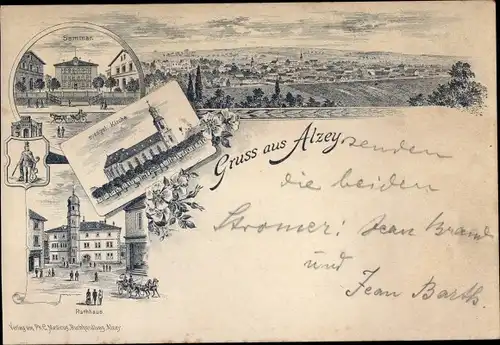 Seminar.
evangel. Kirche
Gruss aus Alzey
senden
die beiden
Stromer: Jean Brand
und
Jean Barth.
Rathhaus.
Verlag von Buchhandlung, Alzey.